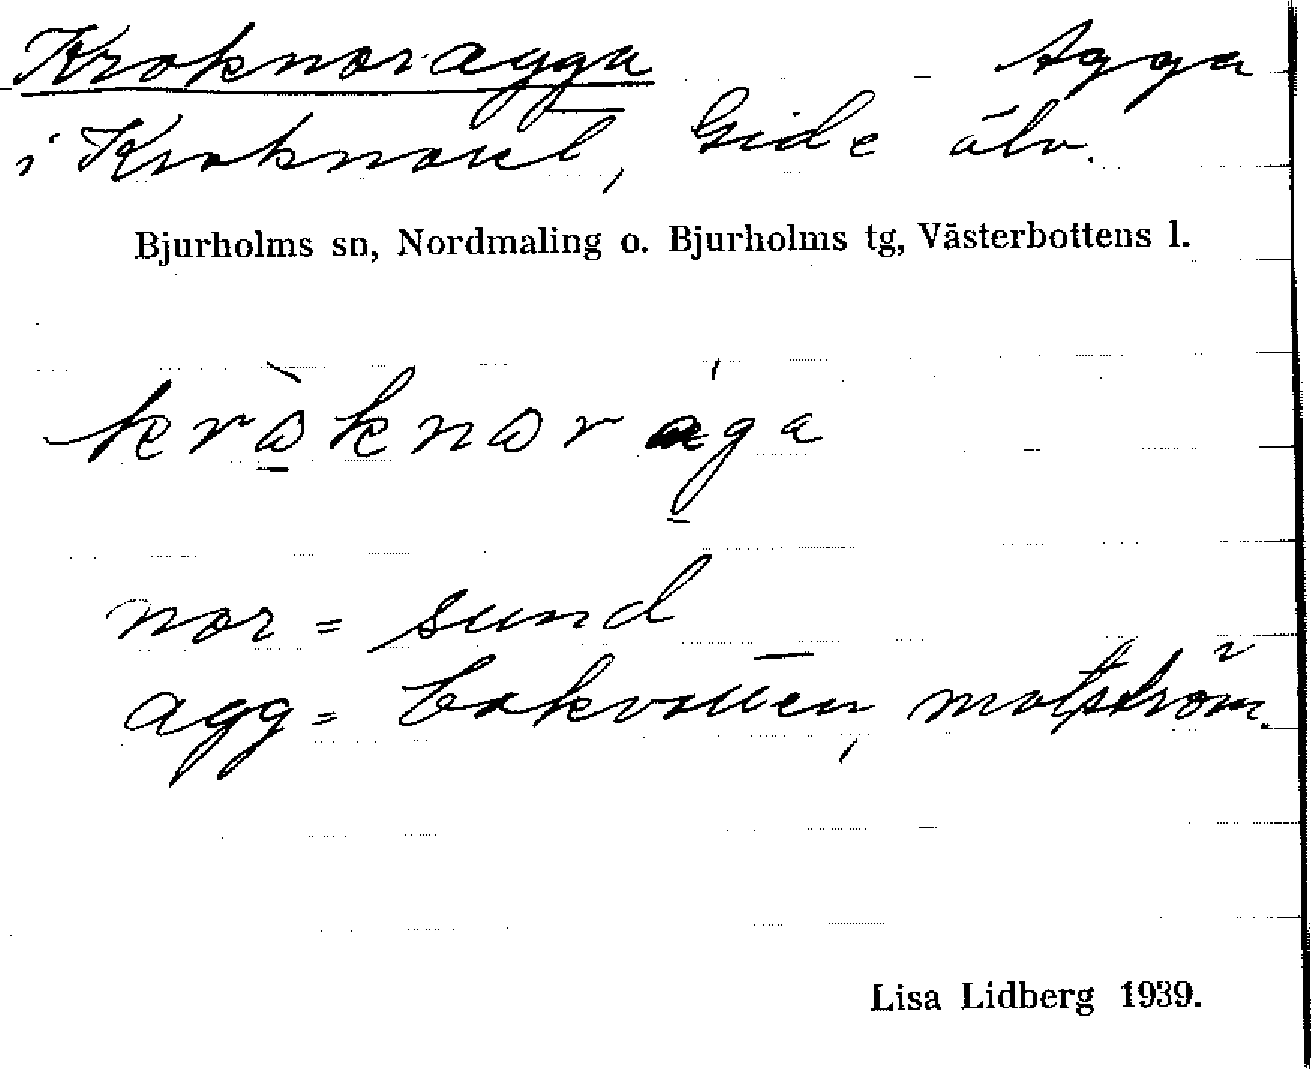 Kroknoragga Agga
i Kroknoret, Gide älv.
Bjurholms sn, Nordmaling o. Bjurholms tg, Västerbottens l.
nor = sund
agg = bakvatten, motström.
Lisa Lidberg 1939.